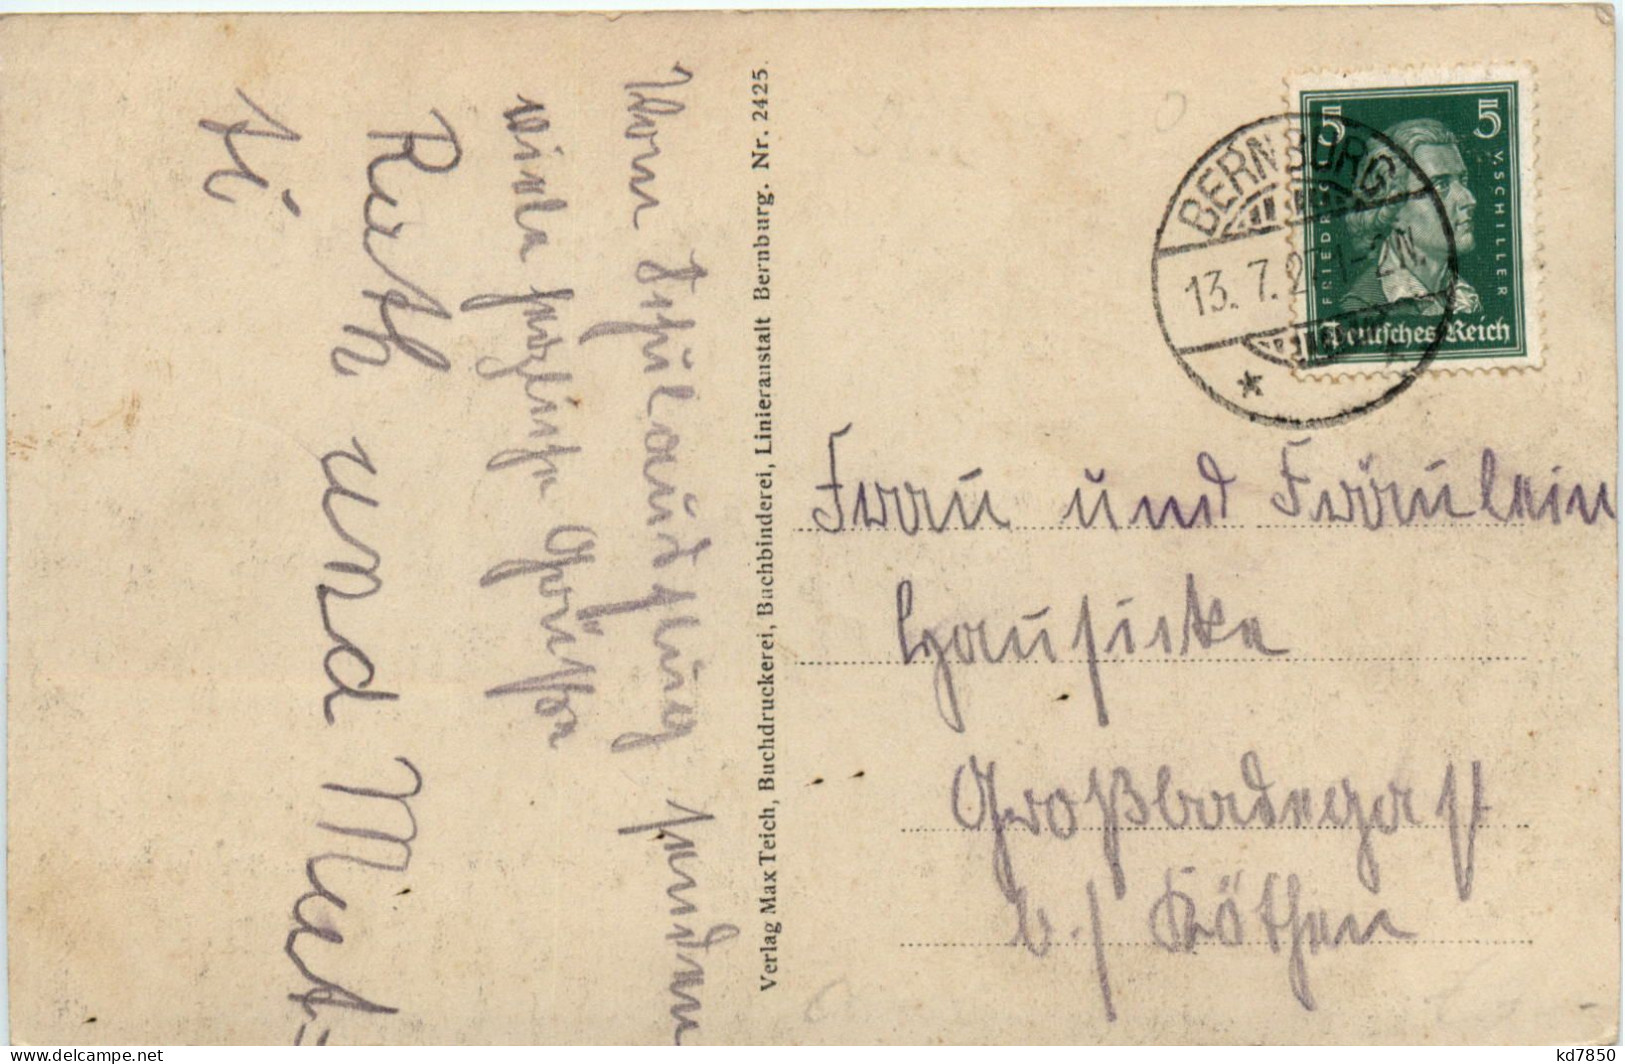 Vom Schulausflug senden
viele herzliche Grüße
Ruth und Miet-
zi
Verlag Max Teich, Buchdruckerei, Buchbinderei, Linieranstalt Bernburg. Nr. 2425.
5 5
FRIEDR. V. SCHILLER
Deutsches Reich
BERNBURG
13.7.27 1-2N.
* *
Frau und Fräulein
Großbadegast
b./ Köthen
kd7850